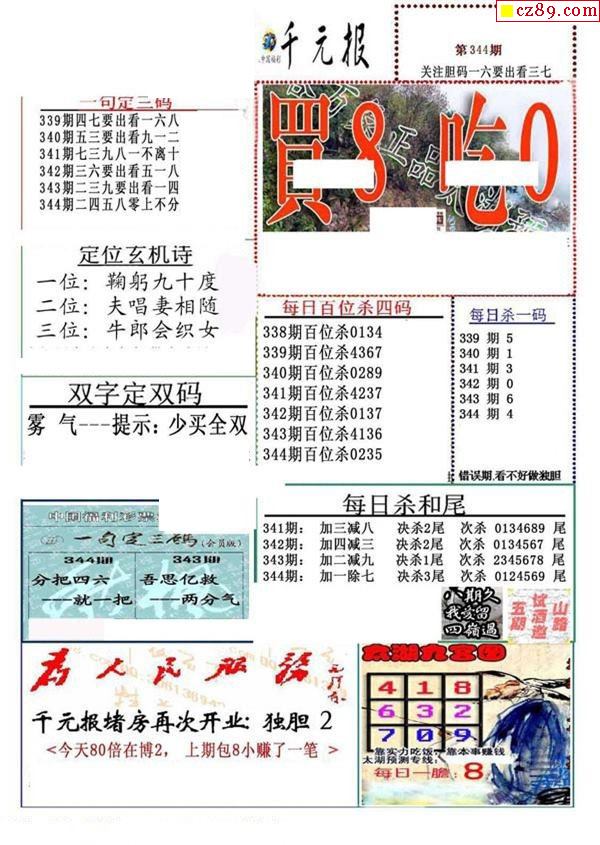 cz89.com
千元报
第344期
关注胆码一六要出看三七
一句定三码
339期四七要出看一六八
340期五三要出看九一二
341期七三九八一不离十
342期三六要出看五一八
343期二三九要出看一四
344期二四五八零上不分
買8 吃0
定位玄机诗
一位：鞠躬九十度
二位：夫唱妻相随
三位：牛郎会织女
每日百位杀四码
338期百位杀0134
339期百位杀4367
340期百位杀0289
341期百位杀4237
342期百位杀0137
343期百位杀4136
344期百位杀0235
每日杀一码
339 期 5
340 期 1
341 期 3
342 期 0
343 期 6
344 期 4
错误期.看不好做独胆
双字定双码
雾 气---提示：少买全双
中国福利彩票
一句定三码(会员版)
344期
分把四六
——就一把
343期
吾思亿救
——两分气
每日杀和尾
341期： 加三减八 决杀2尾 次杀 0134689 尾
342期： 加四减三 决杀2尾 次杀 0134567 尾
343期： 加二减九 决杀1尾 次杀 2345678 尾
344期： 加一除七 决杀3尾 次杀 0124569 尾
八期久
我爱留
四岭過
山路
试酒邀
五期
为人民服务
千元报堵房再次开业：独胆 2
<今天80倍在博2， 上期包8小赚了一笔 >
太湖九宫图
4 1 8
6 3 2
7 0 9
靠实力吃饭，靠本事赚钱
太湖预测专线：
每日一胆：8